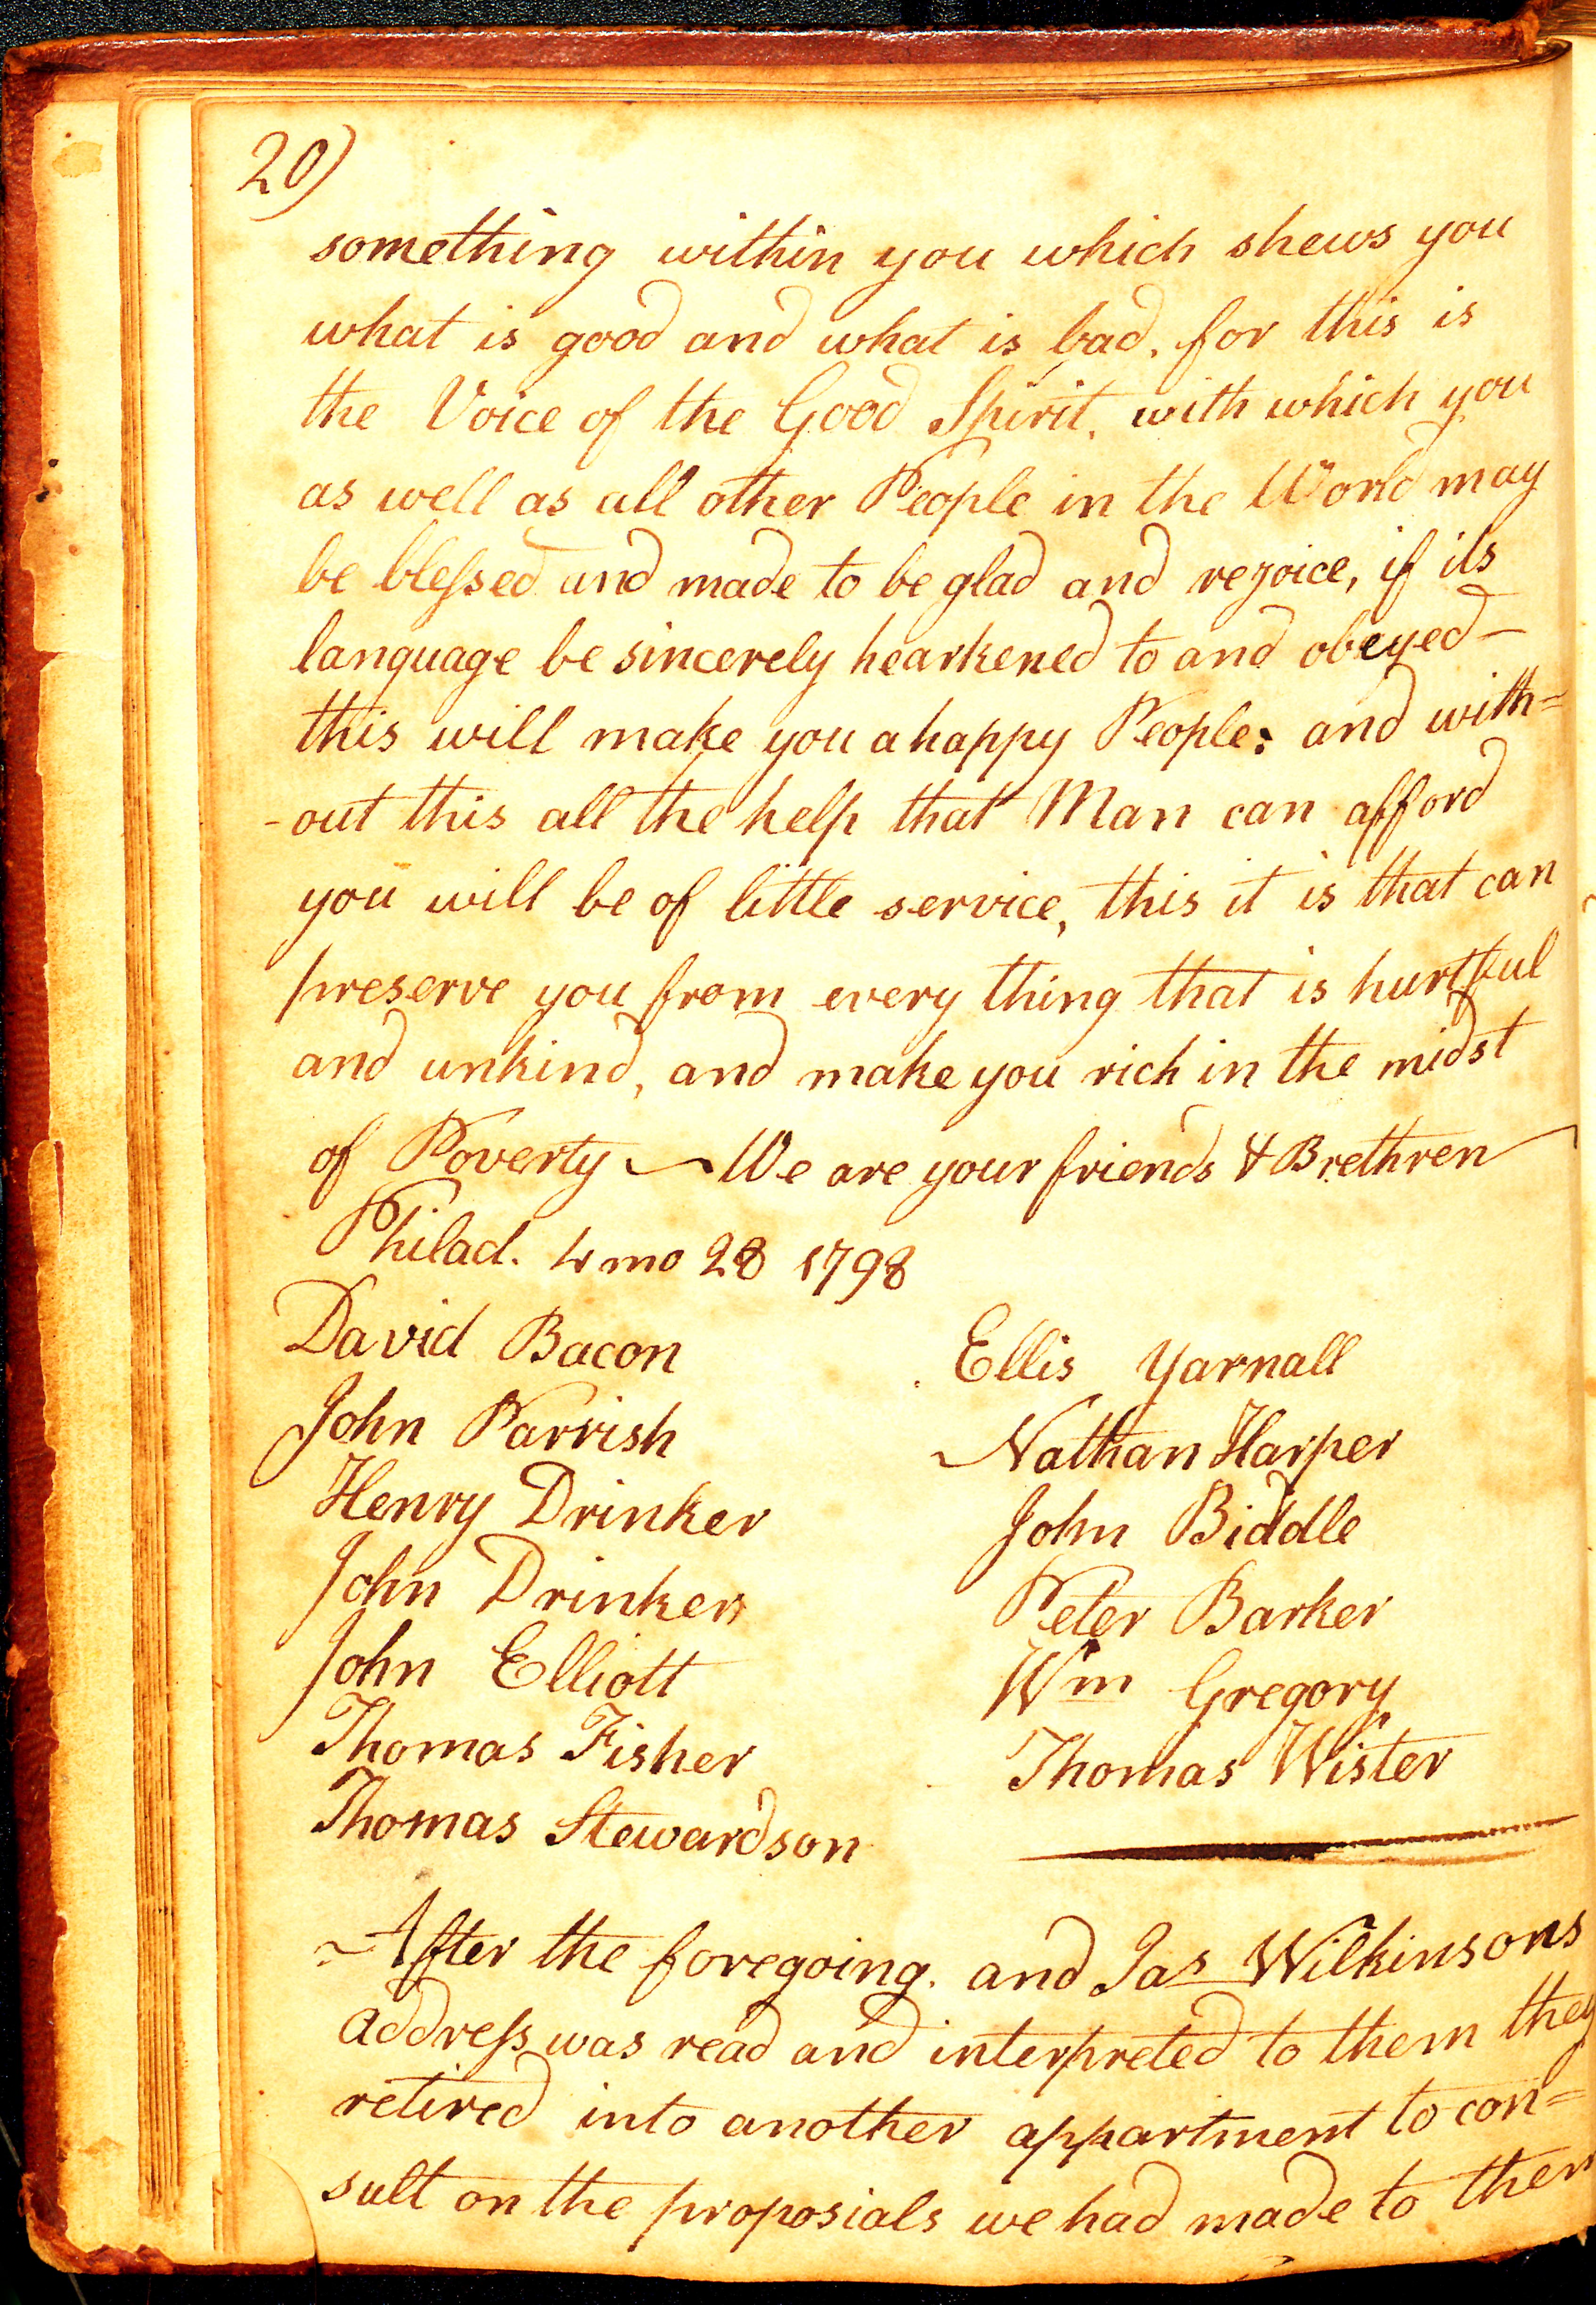 20)
something within you which shews you
what is good and what is bad, for this is
the Voice of the Good Spirit, with which you
as well as all other People in the World may
be blessed and made to be glad and rejoice, if its
language be sincerely hearkened to and obeyed —
this will make you a happy People: and with=
-out this all the help that Man can afford
you will be of little service, this it is that can
preserve you from every thing that is hurtful
and unkind, and make you rich in the midst
of Poverty — We are your friends & Brethren
Philad. 4 mo 28 1798
David Bacon
John Parrish
Henry Drinker
John Drinker
John Elliott
Thomas Fisher
Thomas Stewardson
Ellis Yarnall
Nathan Harper
John Biddle
Peter Barker
Wm Gregory
Thomas Wister
After the foregoing. and Jas Wilkinsons
address was read and interpreted to them they
retired into another appartment to con=
sult on the proposials we had made to them